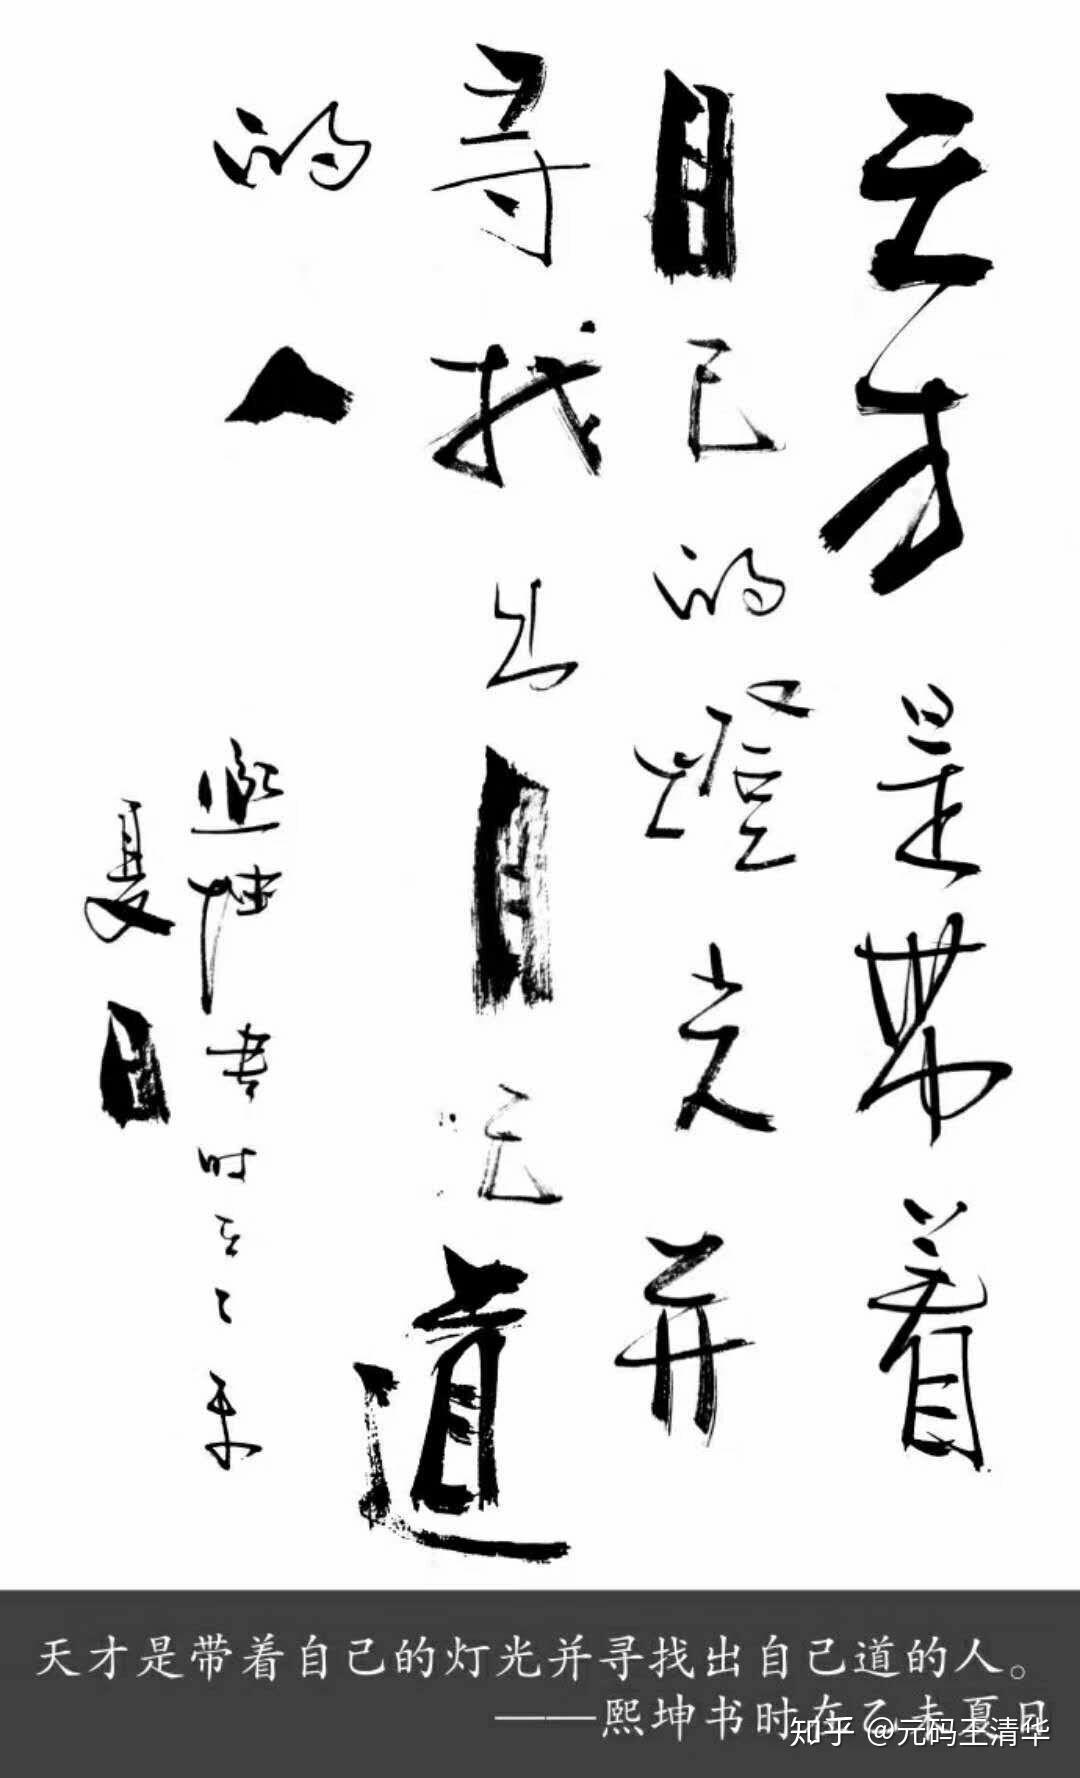 天才是带着
自己的燈光并
寻找出自己道
的人
熙坤书时在乙未
夏日
天才是带着自己的灯光并寻找出自己道的人。
——熙坤书时在乙未夏日
知乎 @元码王清华